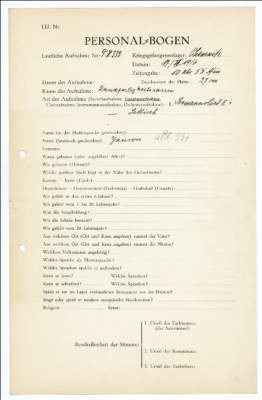 Lfd. Nr.
PERSONAL-BOGEN
Lautliche Aufnahme Nr. Kriegsgefangenenlager:
Datum:
Zeitangabe: 10 Uhr 55 Min
Dauer der Aufnahme: Durchmesser der Platte: 27 cm
Raum der Aufnahme:
Art der Aufnahme (Sprechaufnahme, Gesangsaufnahme,
Choraufnahme, Instrumentenaufnahme, Orchesteraufnahme):
Lettisch
Name (in der Muttersprache geschrieben):
Name (lateinisch geschrieben):
Vorname:
Wann geboren (oder ungefähres Alter)?
Wo geboren (Heimat)?
Welche größere Stadt liegt in der Nähe des Geburtsortes?
Kanton - Kreis (Ujedz):
Department - Gouvernement (Gubernija) - Grafschaft (County):
Wo gelebt in den ersten 6 Jahren?
Wo gelebt vom 7. bis 20. Lebensjahr?
Was für Schulbildung?
Wo die Schule besucht?
Wo gelebt vom 20. Lebensjahr?
Aus welchem Ort (Ort und Kreis angeben) stammt der Vater?
Aus welchem Ort (Ort und Kreis angeben) stammt die Mutter?
Welchem Volksstamm angehörig?
Welche Sprache als Muttersprache?
Welche Sprachen spricht er außerdem?
Kann er lesen? Welche Sprachen?
Kann er schreiben? Welche Sprachen?
Spielt er ein im Lager vorhandenes Instrument aus der Heimat?
Singt oder spielt er modern europäische Musikweisen?
Religion: Beruf:
1. Urteil des Fachmannes
(des Assistenten):
Beschaffenheit der Stimme:
2. Urteil des Kommissars: